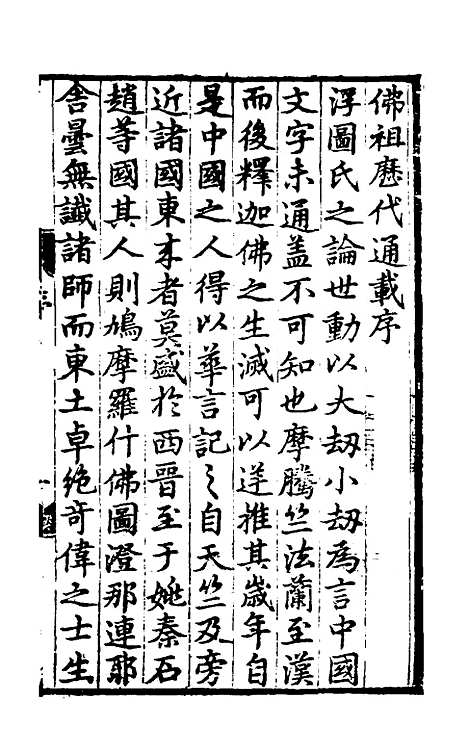 佛祖歷代通載序
浮圖氏之論世動以大刼小刼為言中國
文字未通盖不可知也摩騰竺法蘭至漢
而後釋迦佛之生滅可以逆推其歲年自
是中國之人得以華言記之自天竺及旁
近諸國東来者莫盛於西晉至于姚秦石
趙等國其人則鳩摩羅什佛圖澄那連耶
舎曇無讖諸師而東土卓絶竒偉之士生